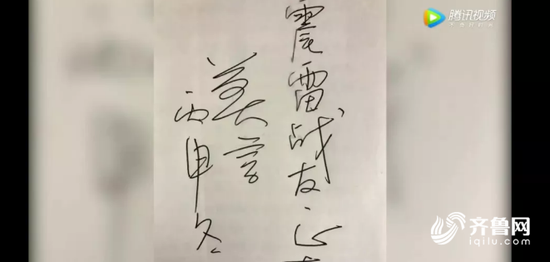 腾讯视频
震雷战友正
莫言
丙申冬
齐鲁网
iqilu.com